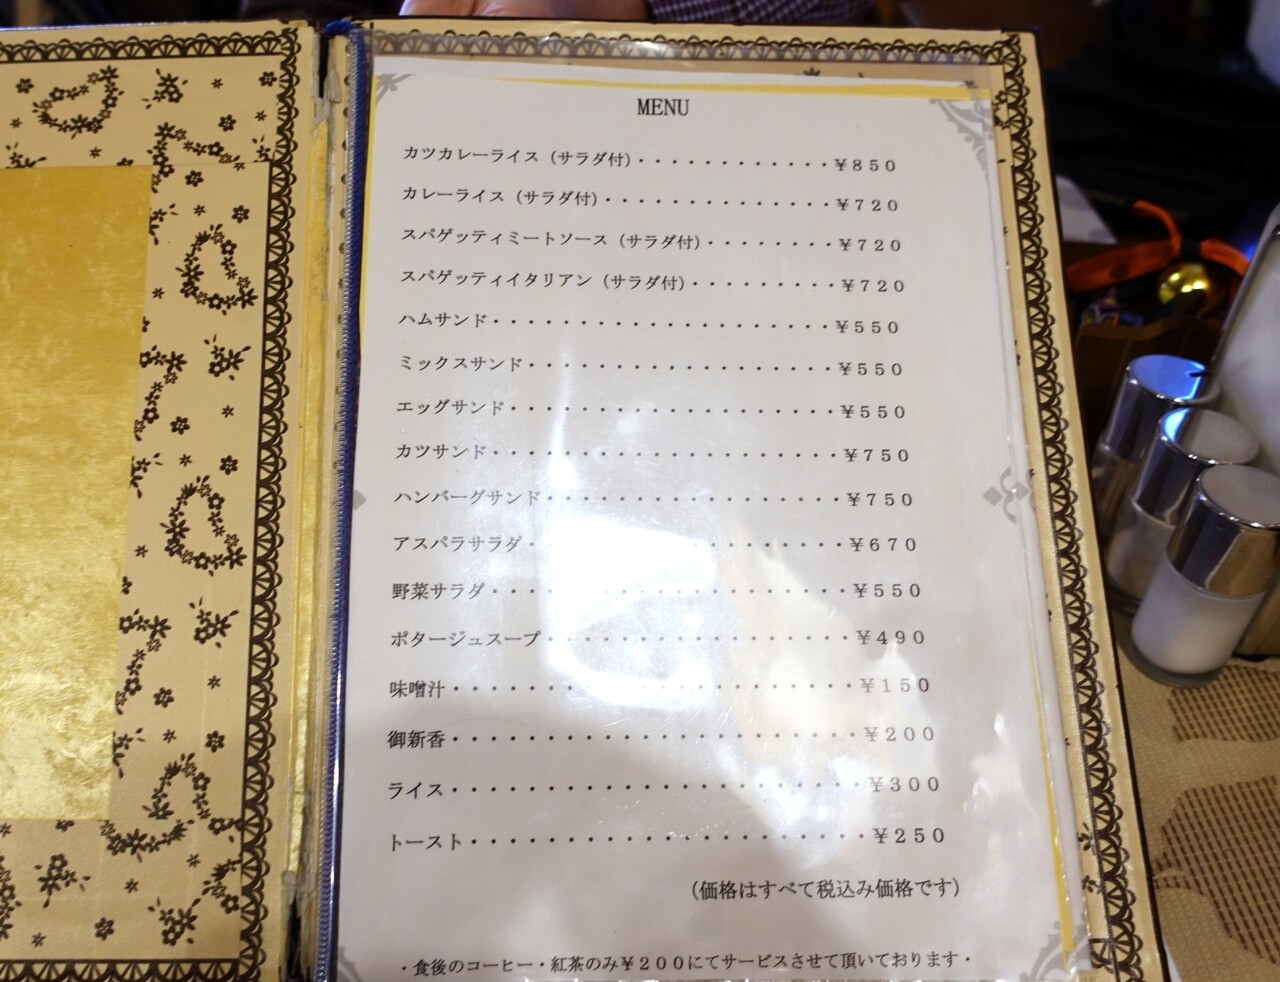 MENU
カツカレーライス（サラダ付）・・・・・・・・・・・・￥８５０
カレーライス（サラダ付）・・・・・・・・・・・・・・￥７２０
スパゲッティミートソース（サラダ付）・・・・・・・・￥７２０
スパゲッティイタリアン（サラダ付）・・・・・・・・・￥７２０
ハムサンド・・・・・・・・・・・・・・・・・・・・・￥５５０
ミックスサンド・・・・・・・・・・・・・・・・・・・￥５５０
エッグサンド・・・・・・・・・・・・・・・・・・・・￥５５０
カツサンド・・・・・・・・・・・・・・・・・・・・・￥７５０
ハンバーグサンド・・・・・・・・・・・・・・・・・・￥７５０
アスパラサラダ・・・・・・・・・・・・・・・・・・・￥６７０
野菜サラダ・・・・・・・・・・・・・・・・・・・・・￥５５０
ポタージュスープ・・・・・・・・・・・・・・・・・・￥４９０
味噌汁・・・・・・・・・・・・・・・・・・・・・・・￥１５０
御新香・・・・・・・・・・・・・・・・・・・・・・・￥２００
ライス・・・・・・・・・・・・・・・・・・・・・・・￥３００
トースト・・・・・・・・・・・・・・・・・・・・・・￥２５０
（価格はすべて税込み価格です）
・食後のコーヒー・紅茶のみ￥２００にてサービスさせて頂いております・